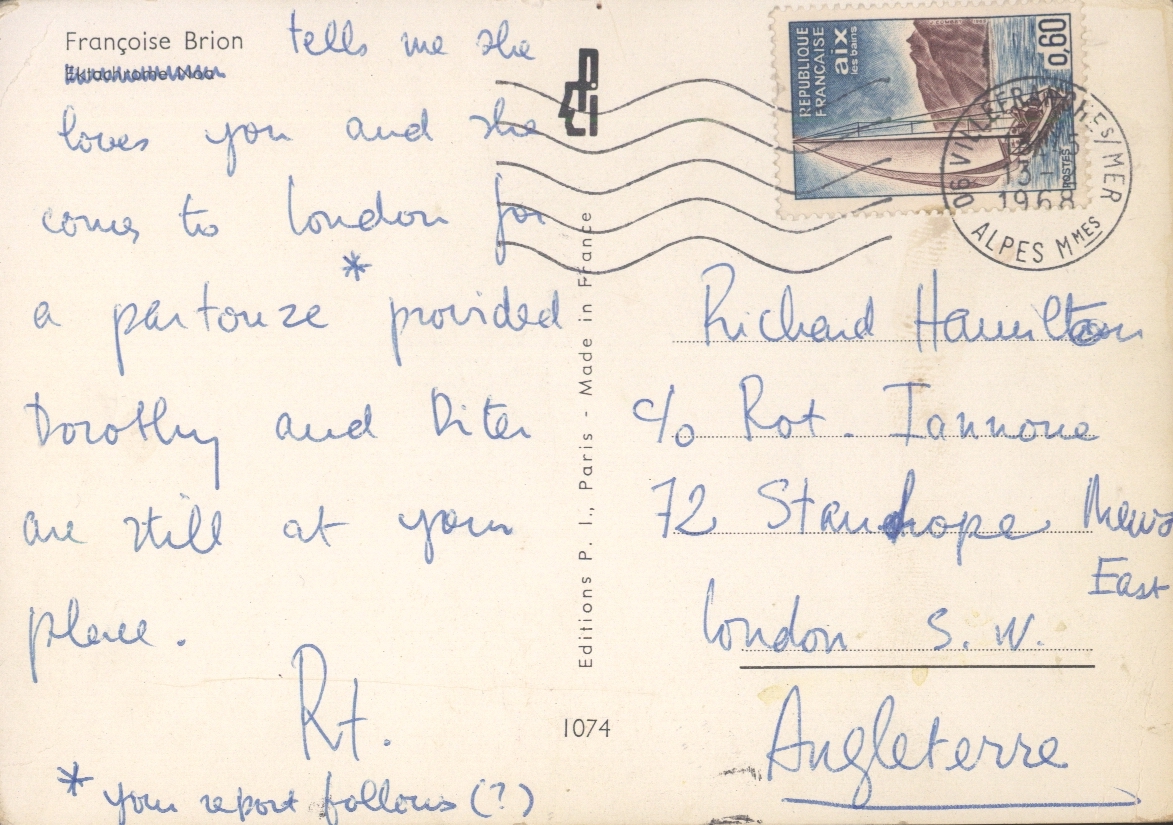 Françoise Brion tells me she
Ektachrome Naa
loves you and she
comes to London for
a partouze* provided
Dorothy and Diter
are still at your
place.
Rt.
* your report follows (?)
Editions P. I., Paris - Made in France
1074
REPUBLIQUE
FRANÇAISE
aix
les bains
0,60
POSTES
06 VILLEFRANCHE S/MER
13-
1968
ALPES MMES
Richard Hamilton
c/o Rot. Iannone
72 Stanhope Mews
East
London S. W.
Angleterre